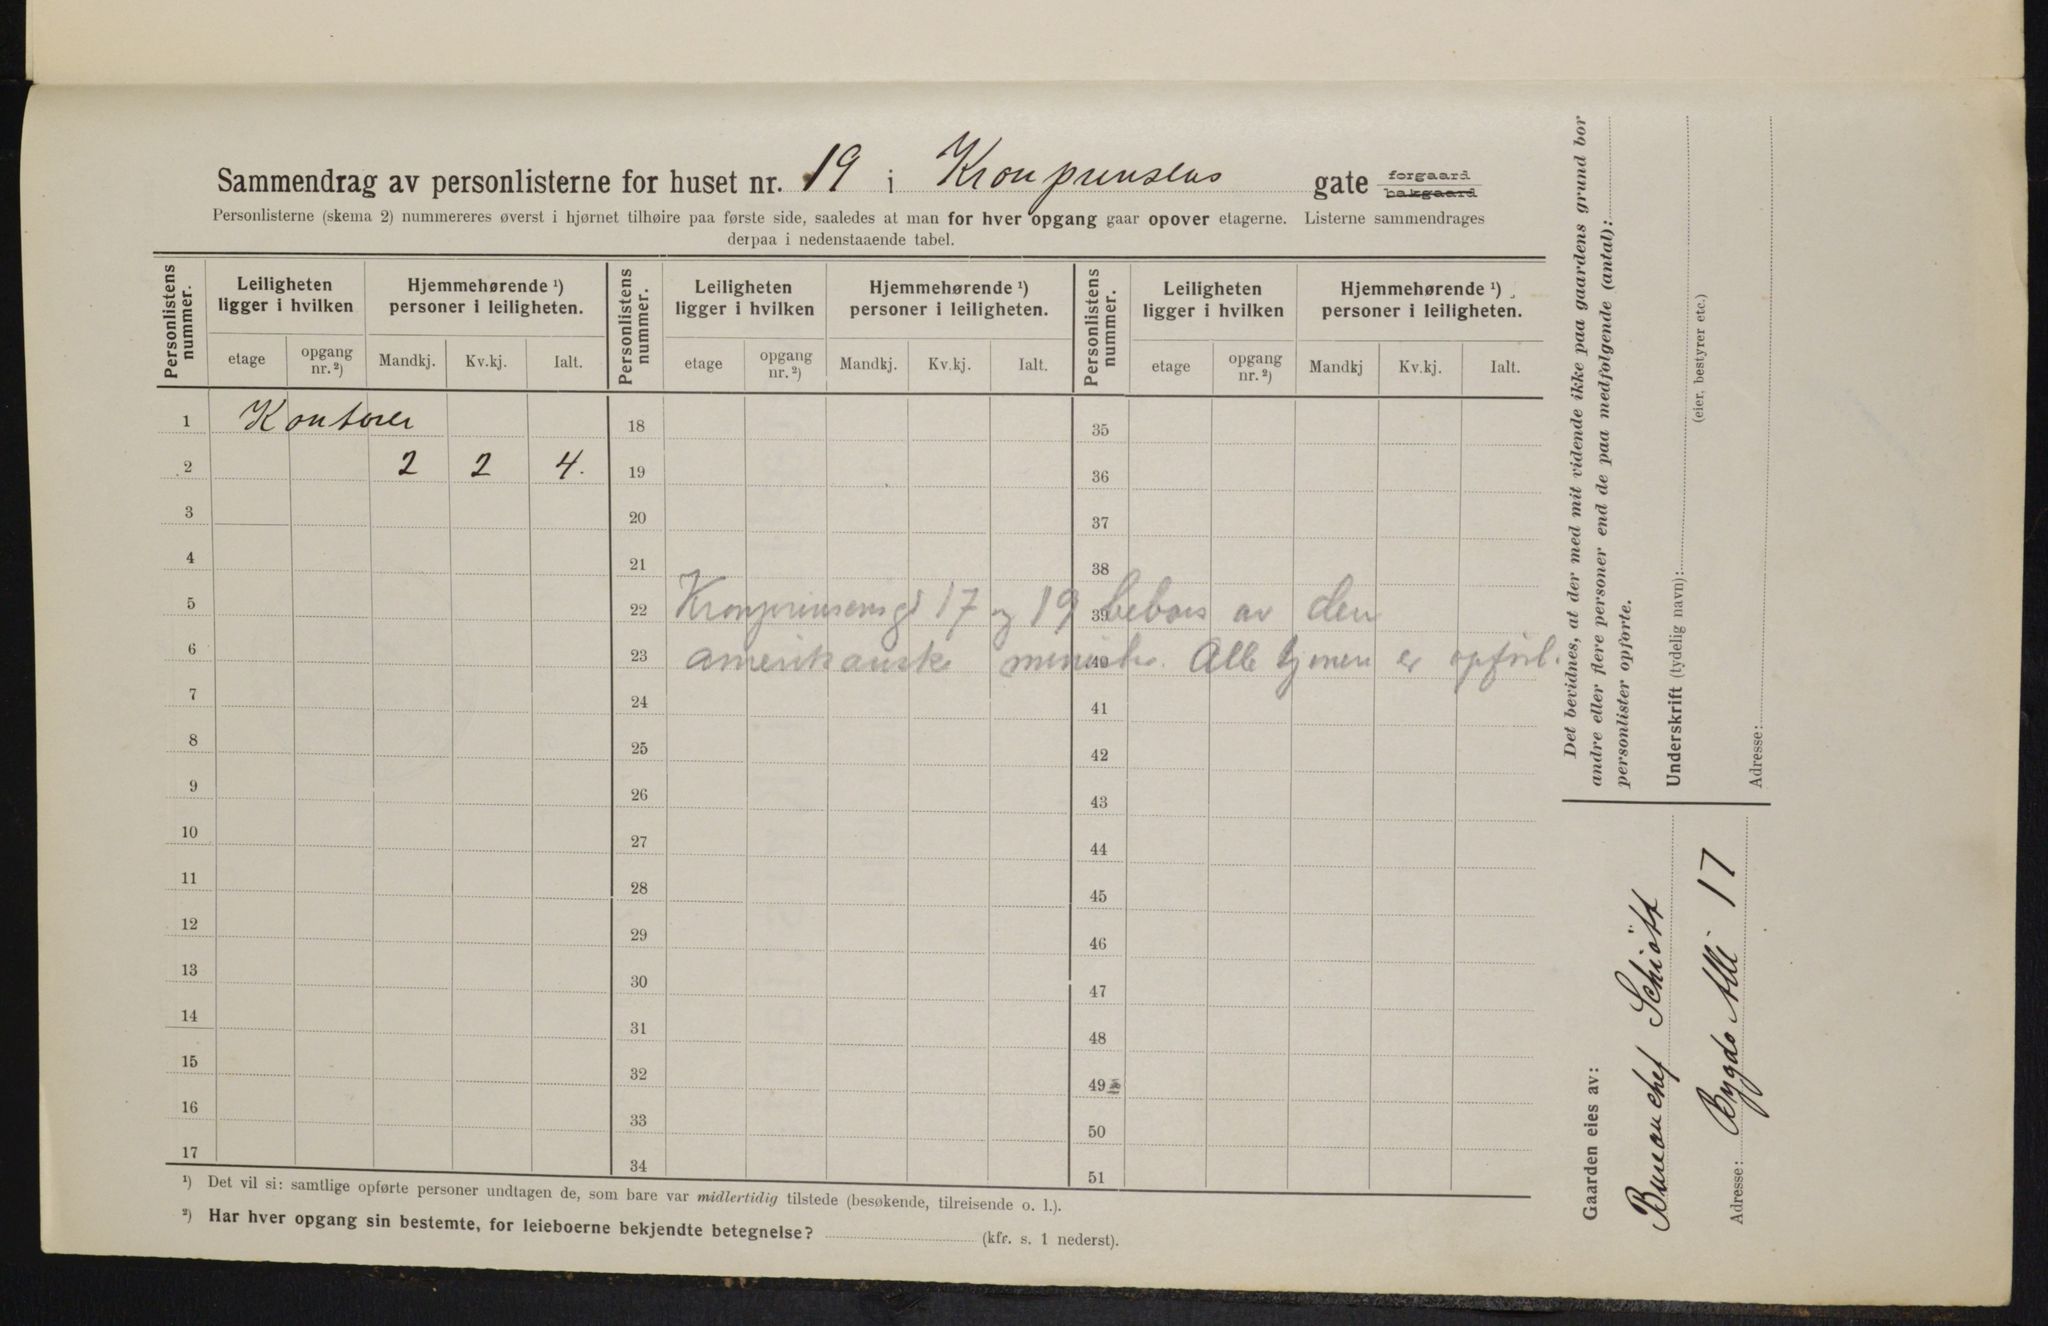 Sammendrag av personlisterne for huset nr. 19 i Kronprinsens gate forgaard bakgaard
Personlisterne (skema 2) nummereres øverst i hjørnet tilhøire paa første side, saaledes at man for hver opgang gaar opover etagerne. Listerne sammendrages
derpaa i nedenstaaende tabel.
Personlistens nummer. Leiligheten ligger i hvilken Hjemmehørende ¹) personer i leiligheten. Personlistens nummer. Leiligheten ligger i hvilken Hjemmehørende ¹) personer i leiligheten. Personlistens nummer. Leiligheten ligger i hvilken Hjemmehørende ¹) personer i leiligheten.
etage opgang nr. ²) Mandkj. Kv.kj. Ialt. etage opgang nr. ²) Mandkj. Kv.kj. Ialt. etage opgang nr. ²) Mandkj Kv.kj. Ialt.
1 Kontorer 18 35
2 2 2 4. 19 36
3 20 37
4 21 38
5 22 Kronprinsensgt 17 og 19 39 bebos av den
6 23 amerikanske minister. 40 Alle hjemen er opført.
7 24 41
8 25 42
9 26 43
10 27 44
11 28 45
12 29 46
13 30 47
14 31 48
15 32 49
16 33 50
17 34 51
¹) Det vil si: samtlige opførte personer undtagen de, som bare var midlertidig tilstede (besøkende, tilreisende o. l.).
²) Har hver opgang sin bestemte, for leieboerne bekjendte betegnelse? (kfr. s. 1 nederst).
Det bevidnes, at der med mit vidende ikke paa gaardens grund bor
andre eller flere personer end de paa medfølgende (antal):
personlister opførte.
Underskrift (tydelig navn):
(eier, bestyrer etc.)
Adresse:
Gaarden eies av:
Bureauchef Schiött
Adresse: Bygdø Allé 17